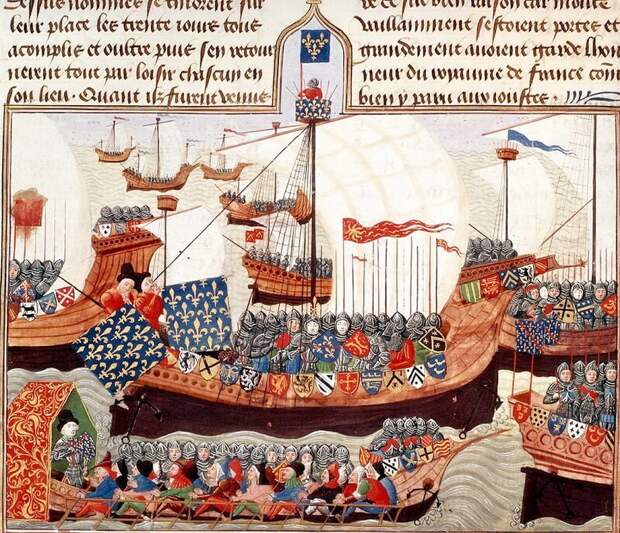 Dessus nommes se tindrent sur
leur place les trente iours tous
acomplis et oultre puis sen retour
nerent tout par loisir chascun en
son lieu. Quant ilz furent venus
re ce fut bien raison car moult
vaillamment sestoient portes et
grandement auoient garde lhon
neur du royaume de france com
bien y paru aux ioustes.